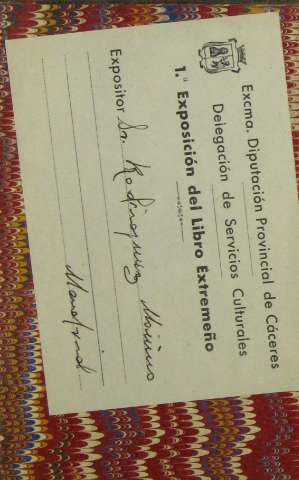 Excma. Diputación Provincial de Cáceres
Delegación de Servicios Culturales
1.ª Exposición del Libro Extremeño
Expositor Sr. Rodríguez Moñino
Madrid